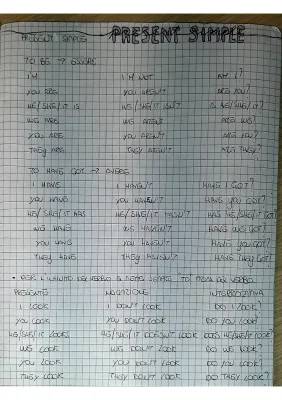 PRESENT SIMPLE PRESENT SIMPLE
TO BE → ESSERE
I'M I'M NOT AM I?
YOU ARE YOU AREN'T ARE YOU?
HE/SHE/IT IS HE/SHE/IT ISN'T IS HE/SHE/IT?
WE ARE WE AREN'T ARE WE?
YOU ARE YOU AREN'T ARE YOU?
THEY ARE THEY AREN'T ARE THEY?
TO HAVE GOT → AVERE
I HAVE I HAVEN'T HAVE I GOT?
YOU HAVE YOU HAVEN'T HAVE YOU GOT?
HE/SHE/IT HAS HE/SHE/IT HASN'T HAS HE/SHE/IT GOT?
WE HAVE WE HAVEN'T HAVE WE GOT?
YOU HAVE YOU HAVEN'T HAVE YOU GOT?
THEY HAVE THEY HAVEN'T HAVE THEY GOT?
• PER L'INFINITO DEL VERBO SI METTE SEMPRE "TO" PRIMA DEL VERBO
PRESENTE NEGAZIONE INTERROGATIVA
I LOOK I DON'T LOOK DO I LOOK?
YOU LOOK YOU DON'T LOOK DO YOU LOOK?
HE/SHE/IT LOOKS HE/SHE/IT DOESN'T LOOK DOES HE/SHE/IT LOOK?
WE LOOK WE DON'T LOOK DO WE LOOK?
YOU LOOK YOU DON'T LOOK DO YOU LOOK?
THEY LOOK THEY DON'T LOOK DO THEY LOOK?